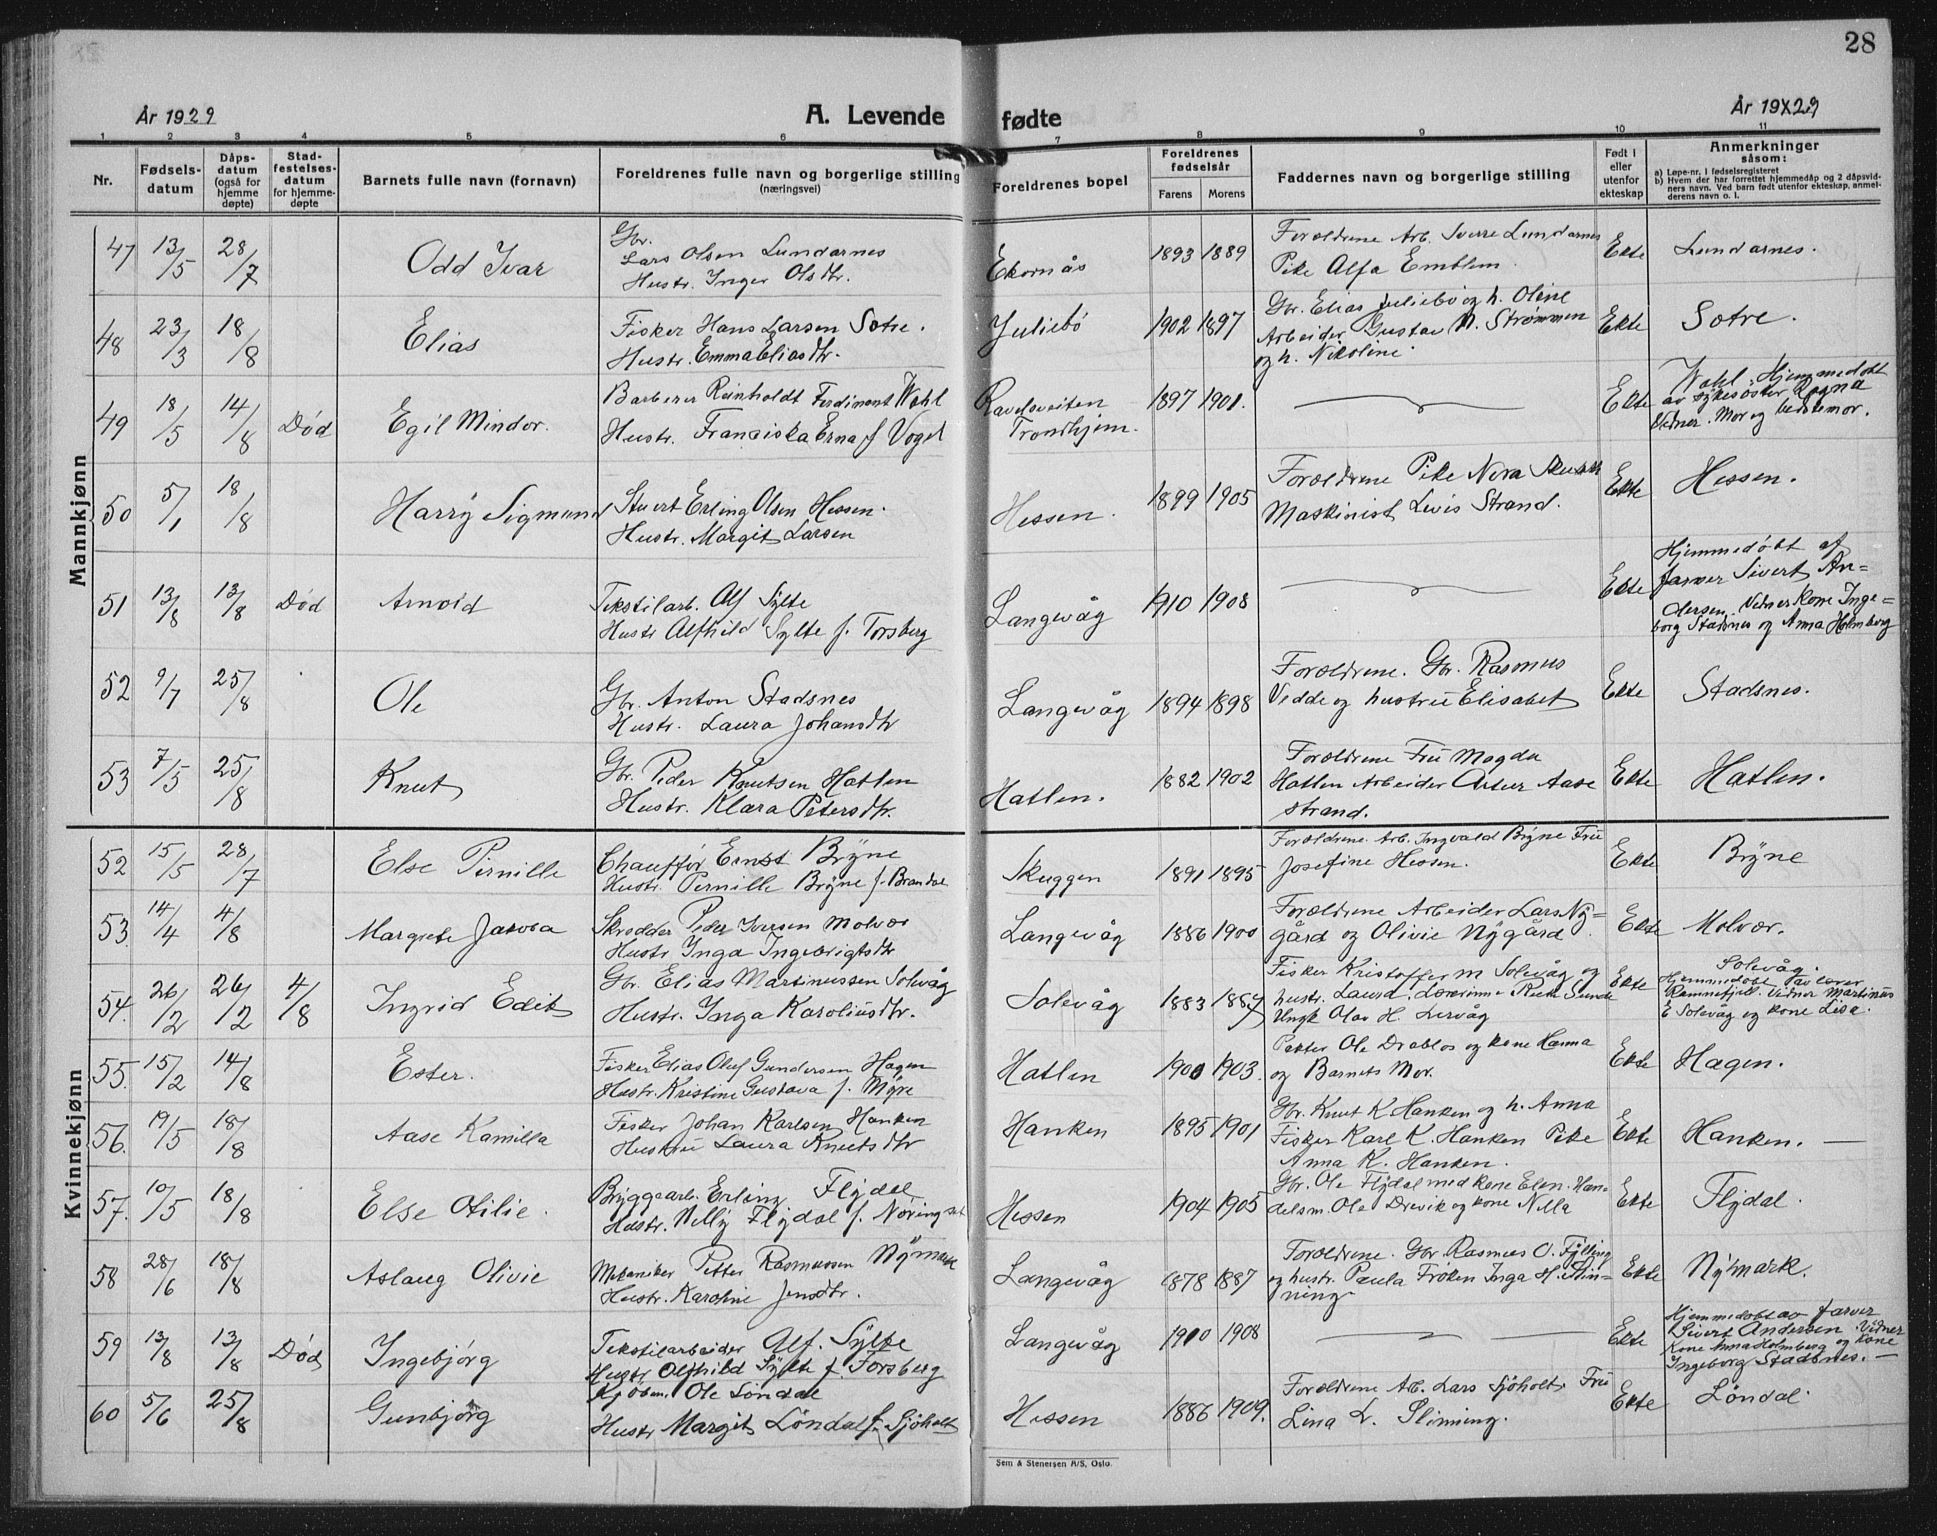 28
År 1929
A. Levende
fødte
År 19X29
1 2 3 4 5 6 7 8 9 10 11
Nr.
Fødsels-
datum
Dåps-
datum
(også for
hjemme
døpte)
Stad-
festelses-
datum
for hjemme-
døpte
Barnets fulle navn (fornavn)
Foreldrenes fulle navn og borgerlige stilling
(næringsvei)
Foreldrenes bopel
Foreldrenes
fødselsår
Farens Morens
Faddernes navn og borgerlige stilling
Født i
eller
utenfor
ekteskap
Anmerkninger
såsom:
a) Løpe-nr. i fødselsregisteret
b) Hvem der har forrettet hjemmedåp og 2 dåpsvid-
ners navn. Ved barn født utenfor ekteskap, anmel-
derens navn o. l.
Mannkjønn
47 13/5 28/7 Odd Ivar
Gbr.
Lars Olsen Lundarnes
Hustr. Inger Olsdtr.
Ekornås 1893 1889
Forældrene Arb. Sverre Lundarnes
Pike Alfa Emblem.
Ekte Lundarnes.
48 23/3 18/8 Elias
Fisker Hans Larsen Sotre.
Hustr. Emma Eliasdtr.
Juliebö 1902 1897
Gbr. Elias Juliebö og h. Oline
Arbeider Gustav N. Strømmen
og h. Nikoline.
Ekte Sotre.
49 18/5 14/8 Död Egil Mindor.
Barberer Reinholdt Ferdinent Wahl
Hustr. Franciska Erna f. Vogel
Trondhjem. 1897 1901.
Ekte
Wahl. Hjemmedöbt
av sykesöster Ragna
Vidner. Mor og bestemor.
50 5/1 18/8 Harry Sigmund
Stuert Erling Olsen Hessen.
Hustr. Margit Larsen
Hessen. 1899 1905
Forældrene Pike Nora
Maskinist Levis Strand.
Ekte Hessen.
51 13/8 13/8 Död Arnold
Tekstilarb. Alf Sylte
Hustr Alfhild Sylte f. Forsberg
Langevåg 1910 1908
Ekte
Hjemmedöbt af
farver Sivert An=
dersen. Vidner kone Inge=
borg Stadsnes og Anna Holmberg
52 9/7 25/8 Ole
Gbr. Anton Stadsnes
Hustr. Laura Johansdtr
Langevåg 1894 1898
Forældrene. Gbr. Rasmus
Vedde og hustru Elisabet
Ekte Stadsnes.
53 7/5 25/8 Knut
Gbr. Peder Knutsen Hatlen
Hustr. Klara Petersdtr.
Hatlen. 1882 1902
Forældrene Fru Magda
Hatlen Arbeider Artur Aase
strand.
Ekte Hatlen.
Kvinnekjønn
52 15/5 28/7 Else Pernille
Chauffør Ernst Bryne
Hustr. Pernille Bryne f. Brandal
Skuggen 1891 1895
Forældrene. Arb. Ingvald Bryne Fru
Josefine Hessen.
Ekte Bryne
53. 14/4 4/8 Margrete Jakoba
Skrædder Peder Iversen Molvær
Hustr Inga Ingebrigtsdtr
Langevåg 1886 1900
Forældrene Arbeider Lars Ny=
gård og Olivie Nygård.
Ekte Molvær.
54. 26/2 26/2 4/8 Ingrid Edit
Gbr. Elias Martinussen Solevåg
Hustr. Inga Karoliusdtr.
Solevåg 1883 1887
Fisker Kristoffer M Solevåg og
hustr. Laura. Lærerinne Rut Sunde
Ungk Olav H. Lervåg
Ekte
Solevåg.
Hjemmedöbt av lærer
Ramnefjell. Vidner Martinus
E Solevåg og kone Lisa.
55. 15/2 14/8 Ester.
Fisker Elias Oluf Gundersen Hagen
Hustr. Kristine Gustava f. Myre
Hatlen 1900 1903.
Petter Ole Drabløs og kone Hanna
og Barnets Mor.
Ekte Hagen.
56. 19/5 18/8 Aase Kamilla
Fisker Johan Karlsen Hanken
Hustru Laura Knutsdtr
Hanken 1895 1901
Gbr. Knut K Hanken og h. Anna
Fisker Karl K. Hanken Pike
Anna K. Hanken.
Ekte Hanken. —
57. 10/5 18/8 Else Otilie.
Bryggearb. Erling Flydal
Hustr. Nelly Flydal f. Nøringset
Hessen 1904 1905
Gbr. Ole Flydal med kone Elen. Han-
delsm. Ole Drevik og kone Nilla
Ekte Flydal.
58 28/6 18/8 Aslaug Olivie
Mekaniker Petter Rasmussen Nymark
Hustr. Karoline Jensdtr.
Langevåg 1878 1887
Forældrene. Gbr. Rasmus O. Fylling
og hustr. Paula Frøken Inga H. Slin-
ning.
Ekte Nymark.
59 13/8 13/8 Död Ingebjörg
Tekstilarbeider Alf. Sylte
Hustr Alfhild Sylte f. Forsberg
Langevåg 1910 1908
Ekte
Hjemmedöbt av farver
Sivert Andersen. Vidner
Kone Anna Holmberg og kone
Ingeborg Stadsnes. —
60 5/6 25/8 Gunbjörg
Kjöbm. Ole Löndal
Hustr Margit Löndal f. Sjöholt
Hessen 1886 1909.
Forældrene Arb. Lars Sjöholt. Fru
Lina L. Slinning.
Ekte Löndal
Sem & Stenersen A/S, Oslo.